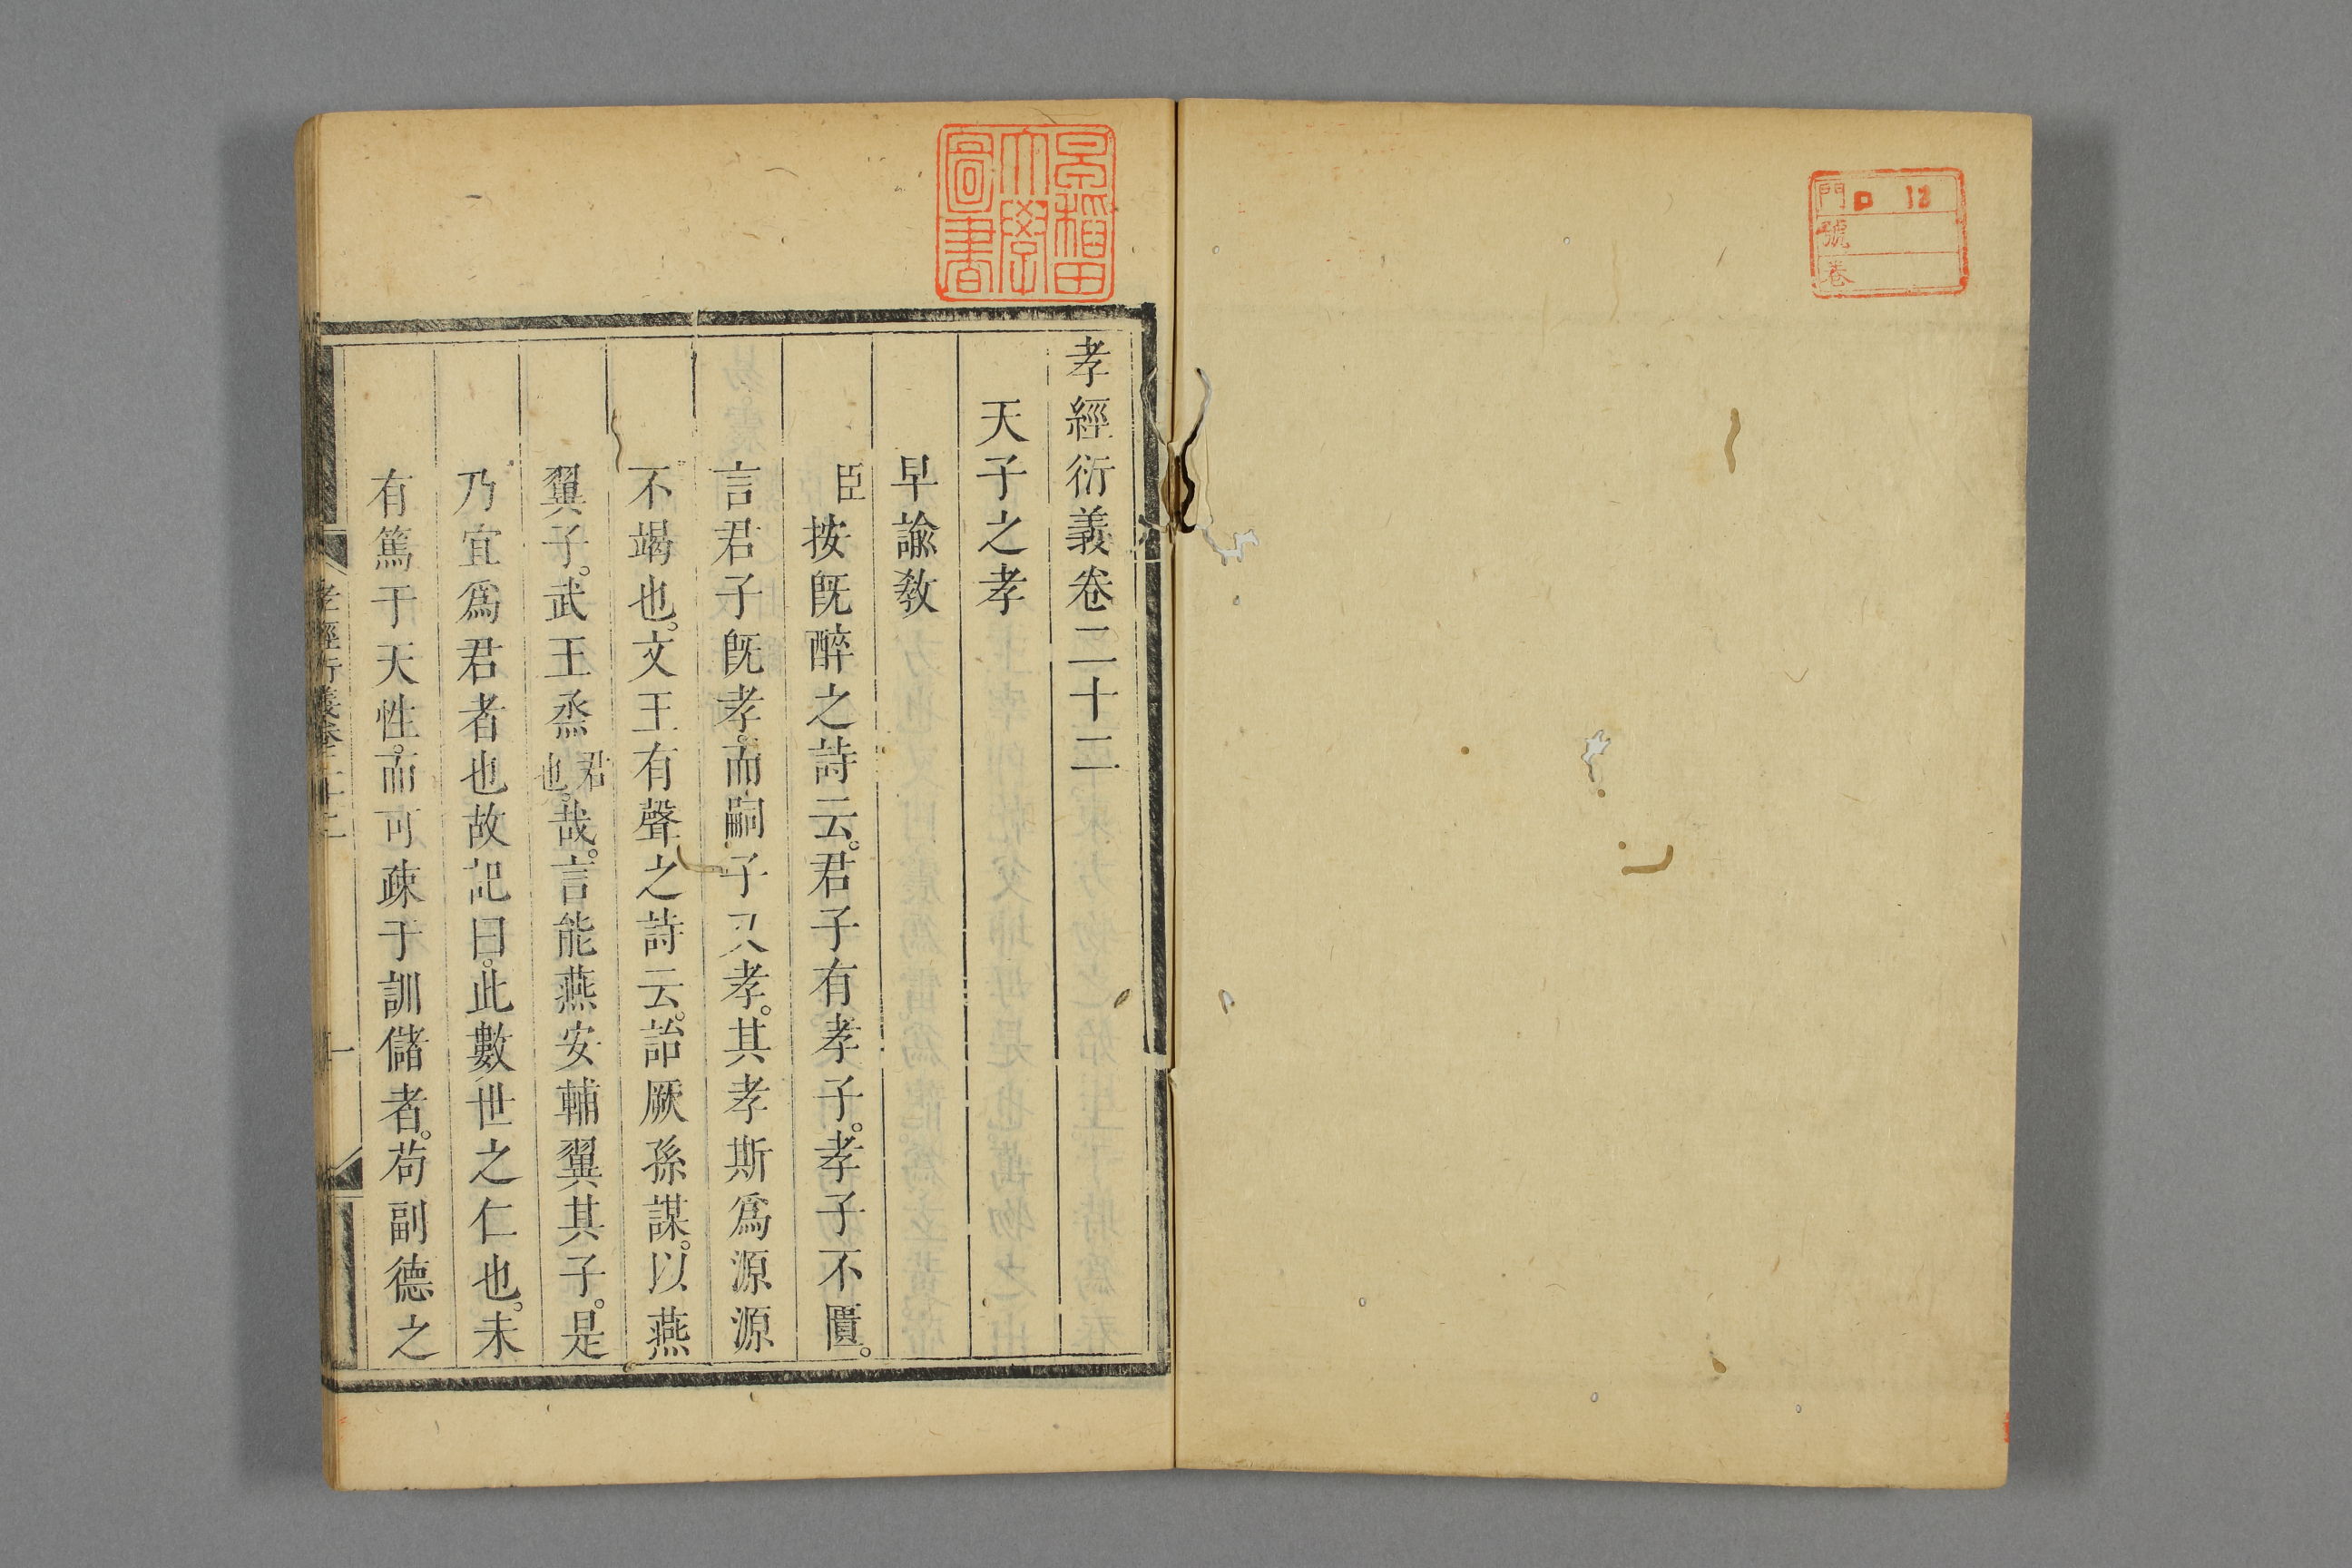 門 ロ 12
號
卷
早稻田
大學
圖書
孝經衍義卷二十二
天子之孝
早諭教
臣按旣醉之詩云。君子有孝子。孝子不匱。
言君子旣孝。而嗣子又孝。其孝斯爲源源
不竭也。文王有聲之詩云。詒厥孫謀。以燕
翼子。武王烝君也。哉。言能燕安輔翼其子。是
乃宜爲君者也故記曰。此數世之仁也。未
有篤于天性。而可疎于訓儲者。苟副德之
孝經衍義卷二十二 一